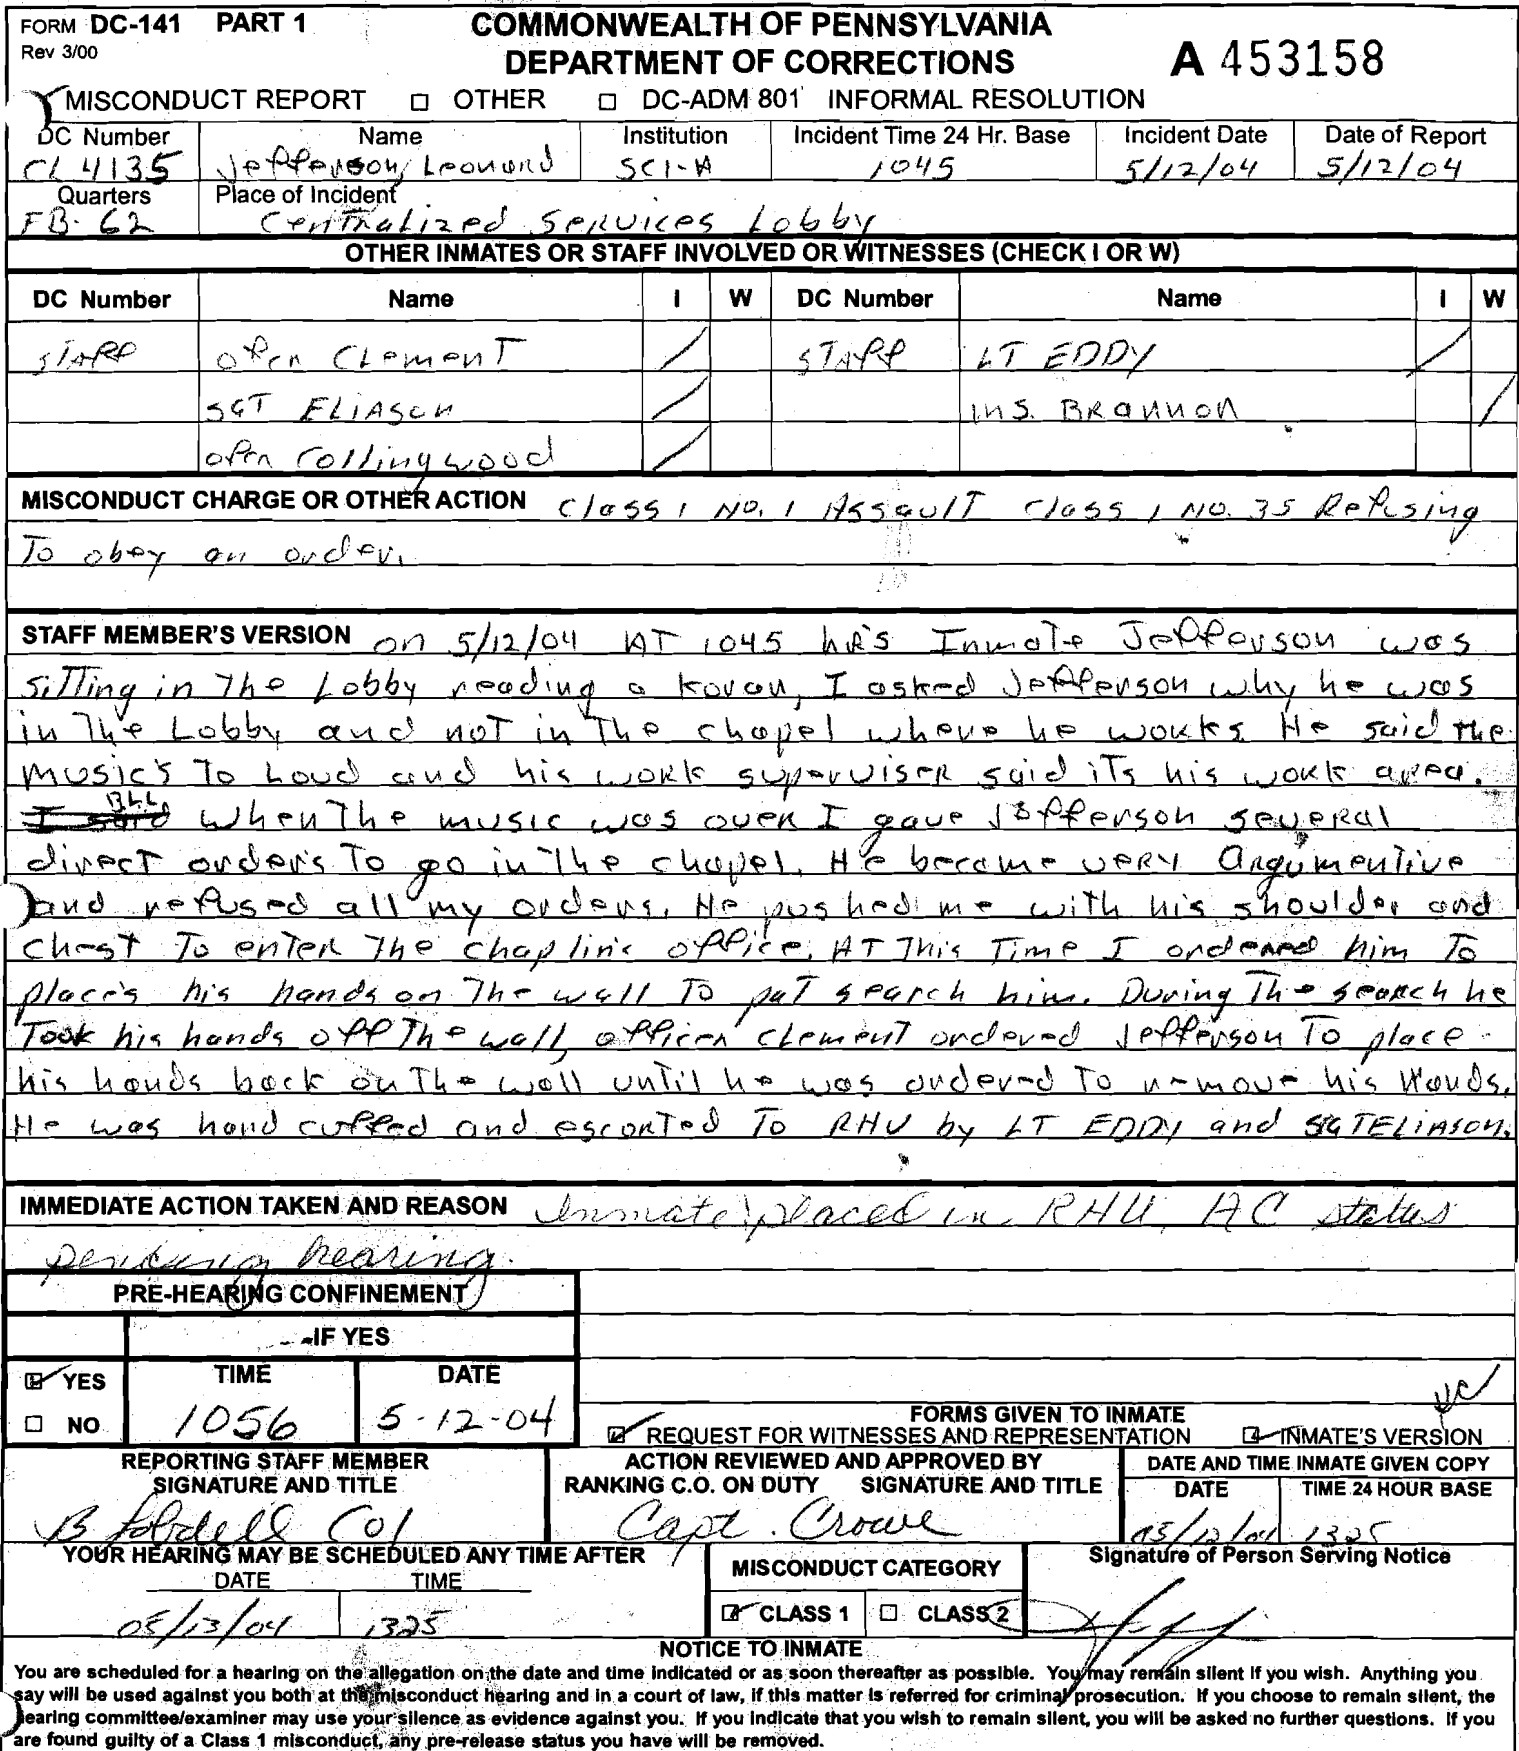 FORM DC-141 PART 1 COMMONWEALTH OF PENNSYLVANIA
Rev 3/00 DEPARTMENT OF CORRECTIONS A 453158
MISCONDUCT REPORT □ OTHER □ DC-ADM 801 INFORMAL RESOLUTION
DC Number Name Institution Incident Time 24 Hr. Base Incident Date Date of Report
CL4135 Jefferson, Leonard SCI-A 1045 5/12/04 5/12/04
Quarters Place of Incident
FB-62 Centralized Services Lobby
OTHER INMATES OR STAFF INVOLVED OR WITNESSES (CHECK I OR W)
DC Number Name I W DC Number Name I W
STAFF Ofcr Clement / STAFF LT EDDY /
SGT ELIASON / INS. BRANNON /
ofcr Collingwood /
MISCONDUCT CHARGE OR OTHER ACTION Class 1 NO. 1 Assault Class 1 NO. 35 Refusing
To obey an order.
STAFF MEMBER'S VERSION on 5/12/04 AT 1045 hrs Inmate Jefferson was
sitting in The Lobby reading a Koran, I asked Jefferson why he was
in The Lobby and not in The chapel where he works. He said the
music's To Loud and his work superviser said its his work area.
I said BLL when The music was over I gave Jefferson several
direct order's To go in The chapel. He became very Argumentive
and refused all my orders. He pushed me with his shoulder and
chest To enter The Chaplin's office. AT This Time I ordered him To
place's his hands on The wall To pat search him. During The search he
Took his hands off The wall, officer Clement ordered Jefferson To place
his hands back on The wall until he was ordered To remove his Hands.
He was hand cuffed and escorted To RHU by LT EDDY and SGT ELIASON.
IMMEDIATE ACTION TAKEN AND REASON Inmate placed in RHU, AC status
pending hearing.
PRE-HEARING CONFINEMENT
IF YES
YES TIME DATE
□ NO 1056 5-12-04
FORMS GIVEN TO INMATE
REQUEST FOR WITNESSES AND REPRESENTATION INMATE'S VERSION
REPORTING STAFF MEMBER ACTION REVIEWED AND APPROVED BY DATE AND TIME INMATE GIVEN COPY
SIGNATURE AND TITLE RANKING C.O. ON DUTY SIGNATURE AND TITLE DATE TIME 24 HOUR BASE
B Lobdell CO1 Capt. Crowe 05/12/04 1325
YOUR HEARING MAY BE SCHEDULED ANY TIME AFTER MISCONDUCT CATEGORY Signature of Person Serving Notice
DATE TIME
05/13/04 1325 CLASS 1 □ CLASS 2
NOTICE TO INMATE
You are scheduled for a hearing on the allegation on the date and time indicated or as soon thereafter as possible. You may remain silent if you wish. Anything you
say will be used against you both at the misconduct hearing and in a court of law, if this matter is referred for criminal prosecution. If you choose to remain silent, the
hearing committee/examiner may use your silence as evidence against you. If you indicate that you wish to remain silent, you will be asked no further questions. If you
are found guilty of a Class 1 misconduct, any pre-release status you have will be removed.